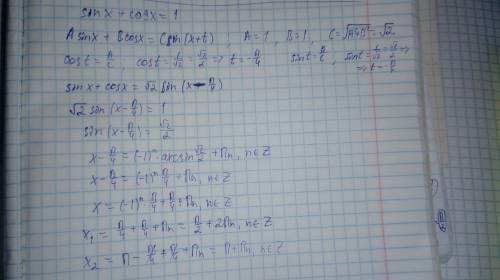 sinx + cosx = 1
A sinx + B cosx = C sin(x+t), A=1, B=1, C=√(A²+B²) = √2
cost = A/C, cost = 1/√2 = √2/2 => t = -π/4 sint = B/C, sint = 1/√2 = √2/2 =>
=> t = π/4
sinx + cosx = √2 sin(x - π/4)
√2 sin(x - π/4) = 1
sin(x - π/4) = √2/2
x - π/4 = (-1)ⁿ arcsin √2/2 + πn, n∈Z
x - π/4 = (-1)ⁿ π/4 + πn, n∈Z
x = (-1)ⁿ · π/4 + π/4 + πn, n∈Z
x₁ = π/4 + π/4 + πn = π/2 + 2πn, n∈Z
x₂ = π - π/4 + π/4 + πn = π + πn, n∈Z